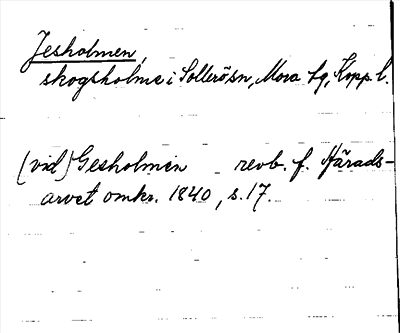 Jesholmen,
skogsholme i Sollerö sn, Mora tg, Kopp. l.
(vid) Gesholmen revb. f. Härads-
arvet omkr. 1840, s. 17.